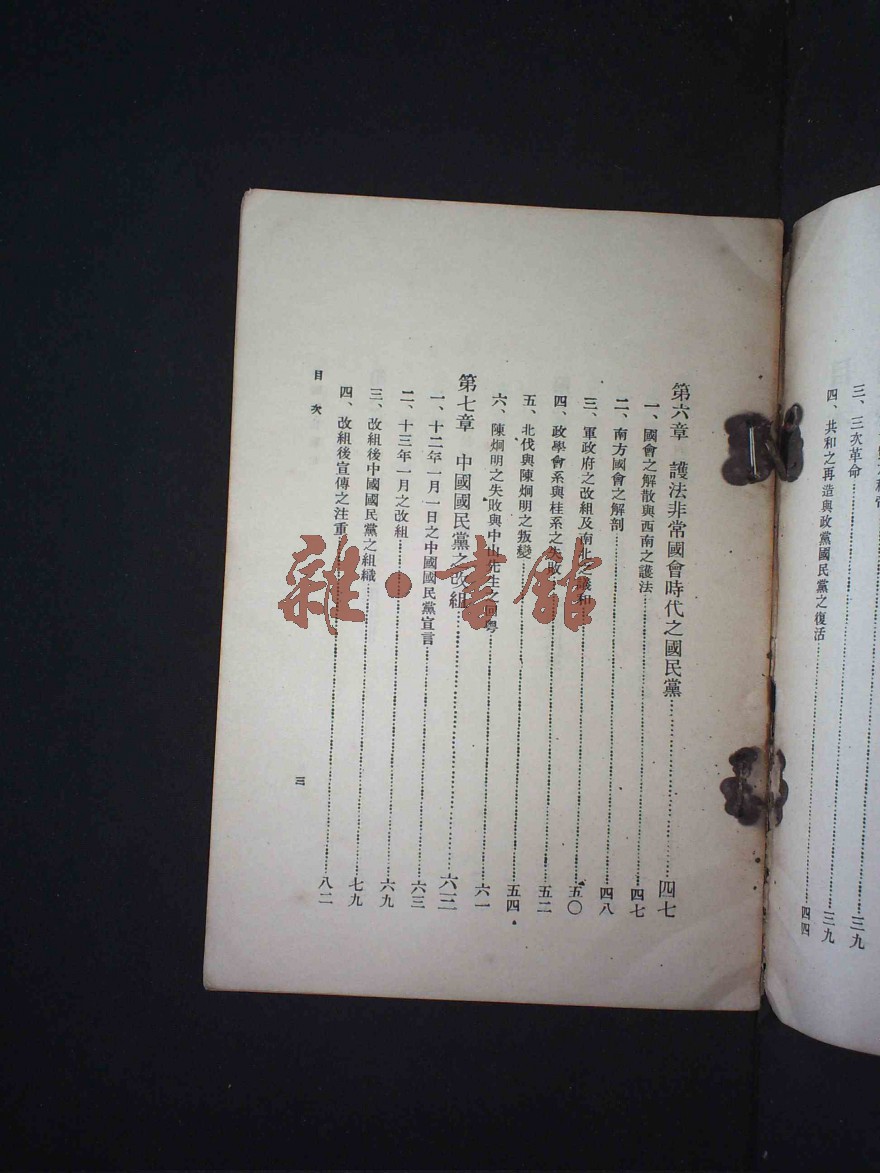 三、三次革命……三九
四、共和之再造與政黨國民黨之復活……三九
四四
第六章　護法非常國會時代之國民黨……四七
一、國會之解散與西南之護法……四七
二、南方國會之解剖……四八
三、軍政府之改組及南北之議和……五〇
四、政學會系與桂系之失敗……五二
五、北伐與陳炯明之叛變……五四
六、陳炯明之失敗與中山先生之回粵……六一
第七章　中國國民黨之改組……六三
一、十二年一月一日之中國國民黨宣言……六三
二、十三年一月之改組……六九
三、改組後中國國民黨之組織……七九
四、改組後宣傳之注重……八二
目次
三
雜·書館